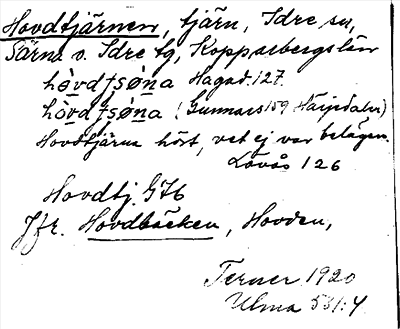 Hovdtjärnen, tjärn, Idre sn,
Särna o. Idre tg, Kopparbergs län
hòvdʃsǿna Hagad. 127.
hòvdʃsǿna (Gunnars 159 Härjedalen)
Hovdtjärn hört, vet ej var belägen.
Lövås 126
Hovdtj. G76
Jfr. Hovdbäcken, Hovden,
Terner 1920
Ulma 531:4